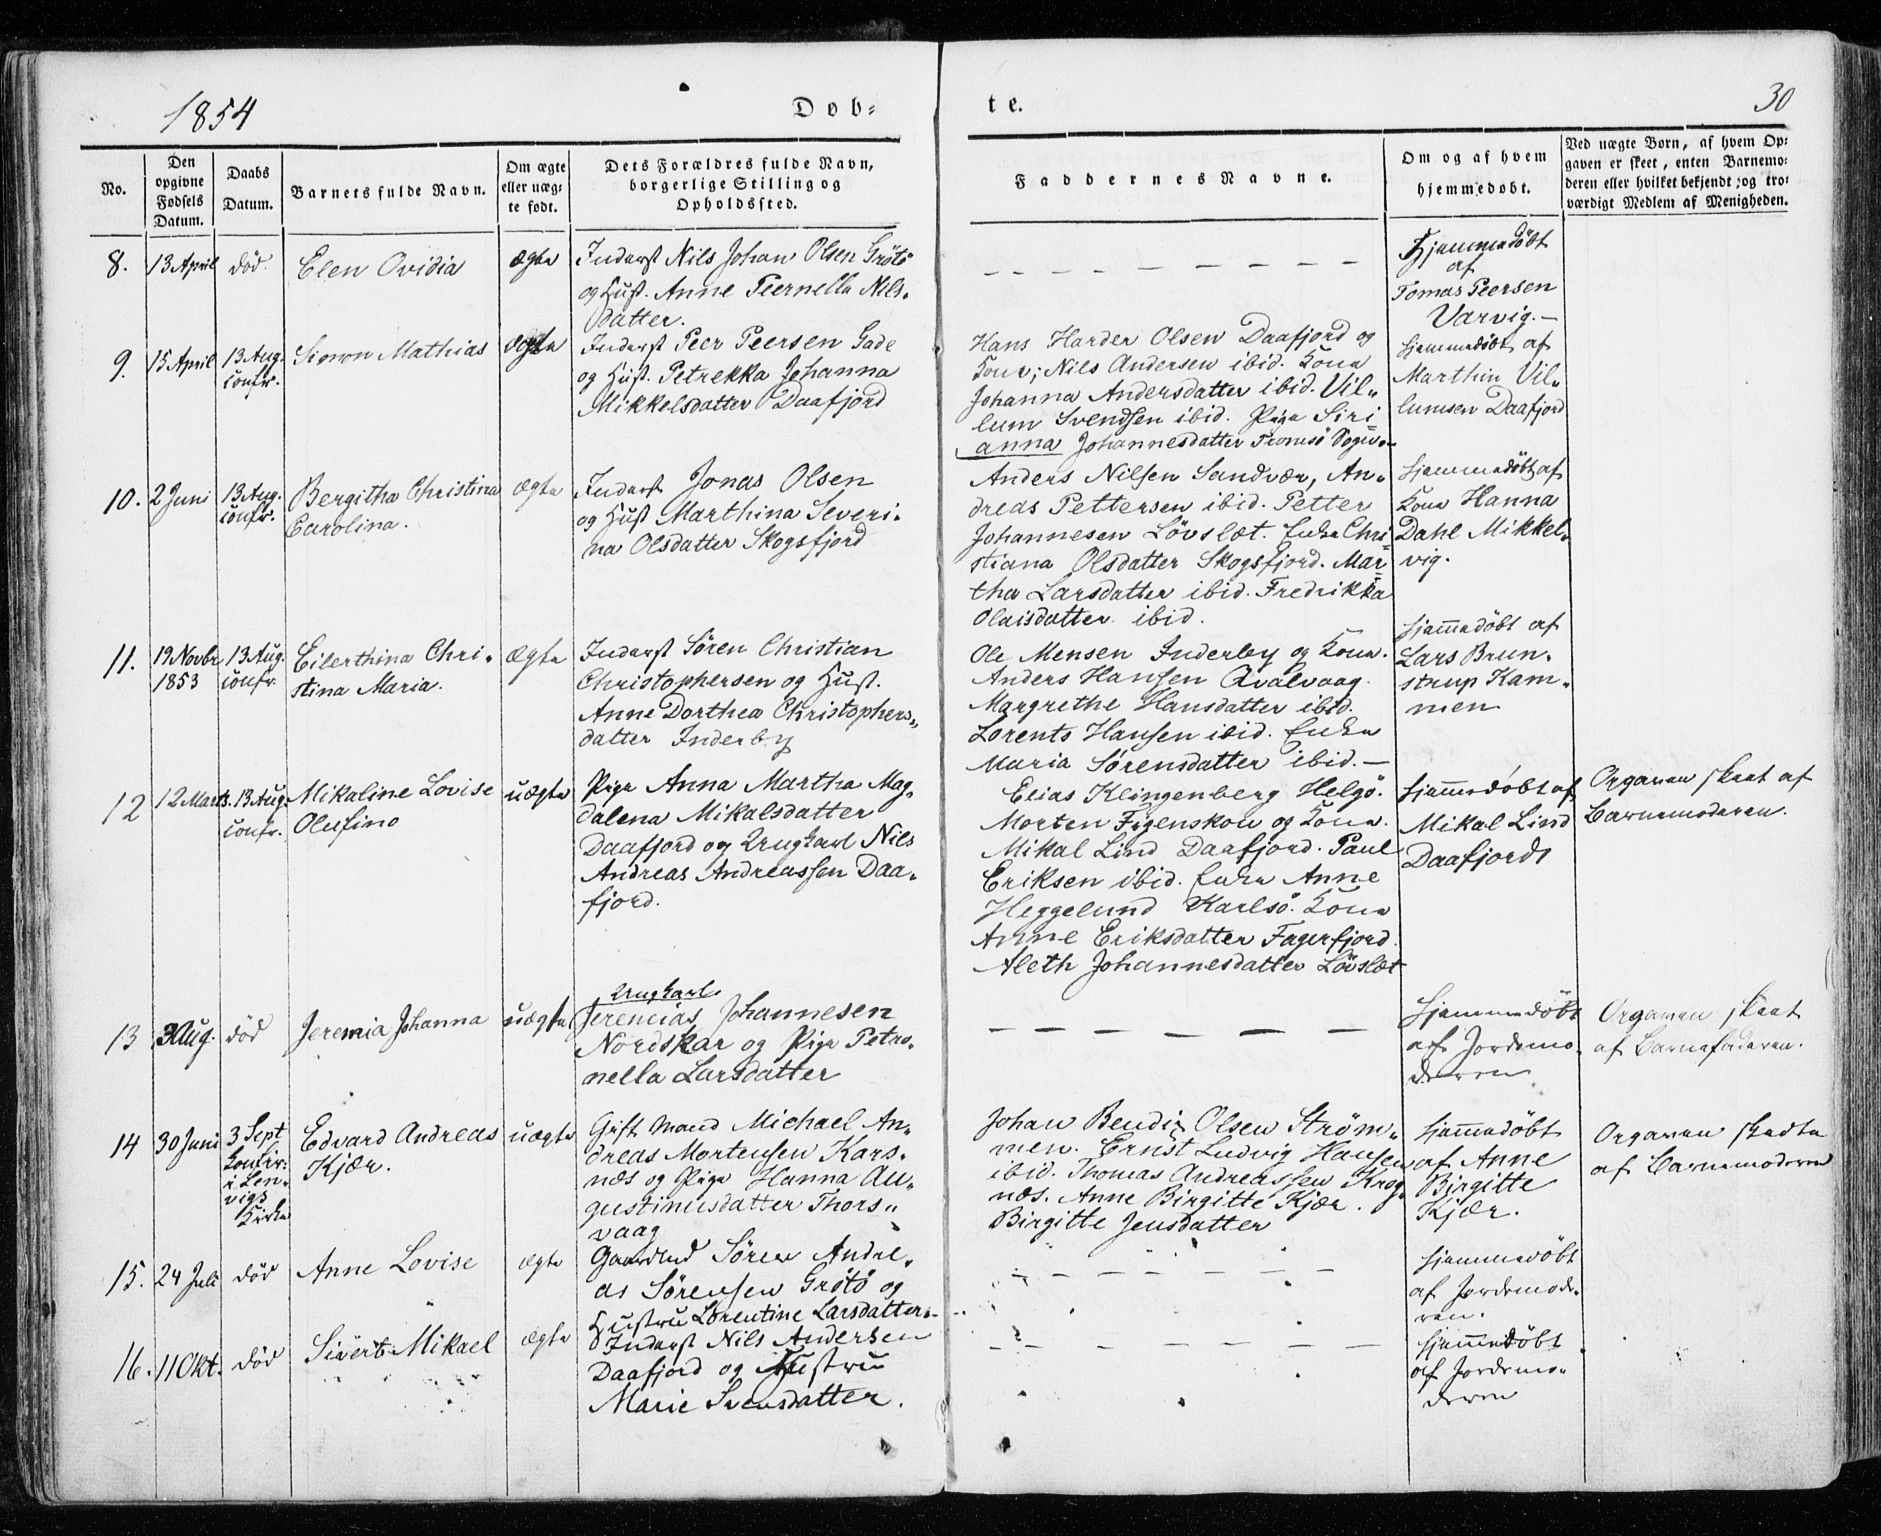 1854
Døb-
te.
30
No.
Den opgivne Fødsels Datum.
Daabs Datum.
Barnets fulde Navn.
Om ægte eller uægte født.
Dets Forældres fulde Navn, borgerlige Stilling og Opholdssted.
Faddernes Navne.
Om og af hvem hjemmedøbt.
Ved uægte Børn, af hvem Op-
gaven er skeet, enten Barnemo-
deren eller hvilket bekjendt, og tro-
værdigt Medlem af Menigheden.
8.
13 April
død.
Elen Ovidia
ægte
Inderst Nils Johan Olsen Grötö
og Hust. Anne Peernella Nils-
datter.
Hjemmedöbt
af
Tomas Peersen
Varvig.
9.
15 April
13 Aug.
confr.
Simon Mathias
ægte
Inderst Peer Peersen Gade
og Hust. Petrekka Johanna
Mikkelsdatter Daafjord
Hans Harder Olsen Daafjord og
Kone; Nils Andersen ibid. Kone
Johanna Andersdatter ibid. Vil-
lum Svendsen ibid. Pige Siri-
anna Johannesdatter Tromsö Sogn
Hjemmedöbt af
Marthin Vil-
lumsen Daafjord
10.
2 Juni
13 Aug.
confr.
Bergitha Christina
Carolina.
ægte
Inderst Jonas Olsen
og Hust Marthina Severi-
na Olsdatter Skogsfjord
Anders Nilsen Sandvær, An-
dreas Pettersen ibid. Petter
Johannesen Lövslæt. Enke Chri-
stiana Olsdatter Skogsfjord. Mar-
tha Larsdatter ibid. Fredrikka
Olaisdatter ibid.
Hjemmedöbt af
Kone Hanna
Dahl Mikkel-
vig.
11.
19 Novbr
1853
13 Aug.
confr.
Eilerthina Chri-
stina Maria.
ægte
Inderst Søren Christian
Christophersen og Hust.
Anne Dorthea Christophers-
datter Inderby
Ole Mensen Inderby og Kone.
Anders Hansen Qvalvaag.
Margrethe Hansdatter ibid.
Lorents Hansen ibid. Enke
Maria Sørensdatter ibid.
Hjemmedöbt af
Lars Brun-
strup Kam-
men
12
12 Marts.
13 Aug.
confr.
Mikaline Lovise
Olufine
uægte
Pige Anna Martha Mag-
dalena Mikalsdatter
Daafjord og Ungkarl Nils
Andreas Andreassen Daa-
fjord.
Elias Klingenberg Helgö.
Morten Figenskou og Kone.
Mikal Lind Daafjord. Paul
Eriksen ibid. Enke Anne
Heggelund Karlsö. Kone
Anne Eriksdatter Fagerfjord.
Aleth Johannesdatter Lövslæt
Hjemmedöbt af
Mikal Lind
Daafjord
Opgaven skeet af
Barnemoderen.
13
3 Aug.
død
Jeremia Johanna
uægte
Ungkarl
Jeremias Johannesen
Nordskar og Pige Petro-
nella Larsdatter
Hjemmedöbt
af Jordemo-
deren
Opgaven skeet
af Barnefaderen.
14
30 Juni
3 Sept
Confir.
i Len-
vigs
Kirke
Edvard Andreas
Kjær.
uægte
Gift Mand Michael An-
dreas Mortensen Kars-
næs og Pige Hanna Au-
gustinusdatter Thors-
vaag
Johan Bendix Olsen Ström-
men. Ernst Ludvig Hansen
ibid. Thomas Andreassen Krog-
næs. Anne Birgitte Kjær.
Birgitte Jensdatter
Hjemmedöbt
af Anne
Birgitte
Kjær.
Opgaven skedte
af Barnemoderen
15.
24 Juli
död
Anne Lovise
ægte
Gaardmd Sören Andre-
as Sörensen Grötö og
Hustru Lorentine Larsdatter
Hjemmedöbt
af Jordemode-
ren.
16.
11 Okt.
død
Sivert Mikael
ægte
Inderst Nils Andersen
Daafjord og Hustru
Marie Svensdatter.
Hjemmedöbt
af Jordemo-
deren